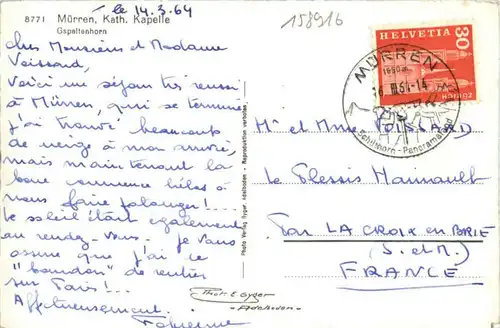 8771 Mürren, Kath. Kapelle
Gspaltenhorn
le 14.3.64
158916
chers Monsieur et Madame
Voissard,
Voici un séjour très réussi
à Mürren, qui se termine
J'ai trouvé beaucoup
de neige à mon arrivée,
mais maintenant la
boue commence hélas à
nous faire patauger!...
Le soleil était également
au rendez-vous. Je vous
assure que j'ai le
"bourdon" de rentrer
sur Paris!...
Affectueusement.
Fabienne
Photo Verlag Gyger, Adelboden - Reproduktion verboten
Phot. E. Gyger
- Adelboden -
HELVETIA
30
ZÜRICH
MÜRREN
1650 m
Schilthorn - Panorama
Mr et Mme VOISSARD
Le Plessis Hainault
Par LA CROIX en BRIE
(S. et M.)
FRANCE